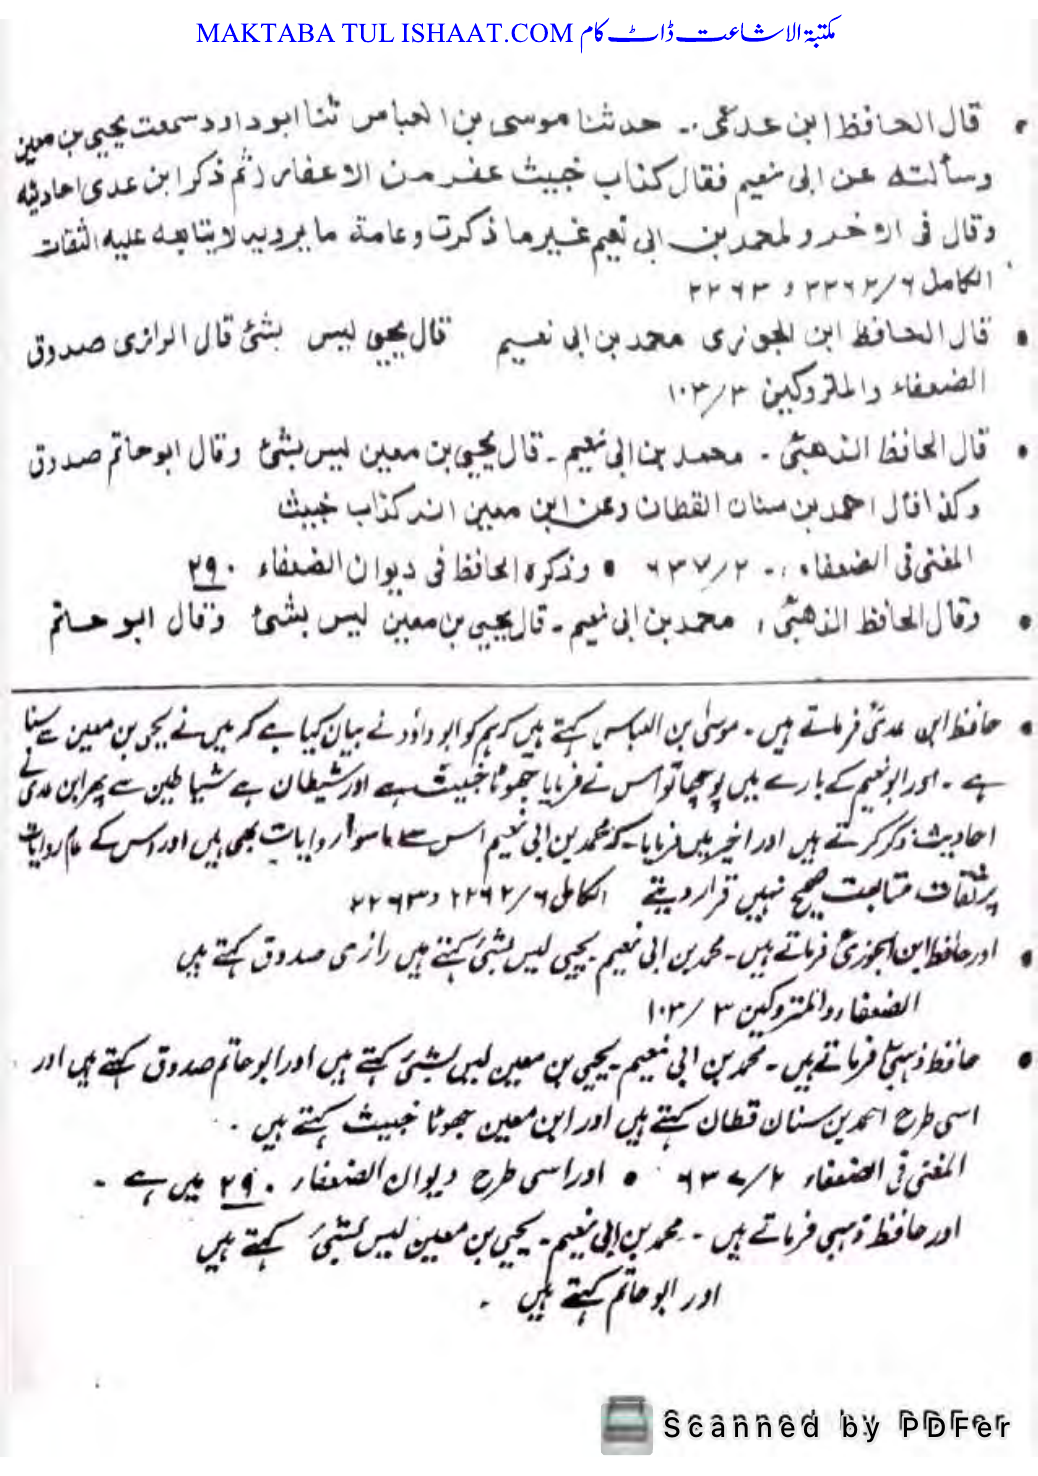 MAKTABA TUL ISHAAT.COM مکتبۃ الاشاعت ڈاٹ کام
قال الحافظ ابن عدیؒ ۔ حدثنا موسی بن العباس ثنا ابوداود سمعت یحیی بن معین
وسألته عن ابی نعیم فقال کذاب خبیث عفر من الاعفار ثم ذکر ابن عدی احادیثه
وقال فی الاخر ولمحمد بن ابی نعیم غیر ما ذکرت وعامة ما یرویه لا یتابعه علیه الثقات
الکامل ۶/۲۲۶۲ و ۲۲۶۳
• قال الحافظ ابن الجوزی محمد بن ابی نعیم قال یحیی لیس بشئ قال الرازی صدوق
الضعفاء والمتروکین ۳/۱۰۳
• قال الحافظ الذهبیؒ ۔ محمد بن ابی نعیم ۔ قال یحیی بن معین لیس بشئ وقال ابوحاتم صدوق
وکذا قال احمد بن سنان القطان وعن ابن معین انه کذاب خبیث
المغنی فی الضعفاء ۔ ۲/۶۳۷ • وذکره الحافظ فی دیوان الضعفاء ۲۹۰
• وقال الحافظ الذهبیؒ ، محمد بن ابی نعیم ۔ قال یحیی بن معین لیس بشئ وقال ابو حاتم
• حافظ ابن عدیؒ فرماتے ہیں ۔ موسیٰ بن العباس کہتے ہیں کہ ہم کو ابو داؤد نے بیان کیا ہے کہ میں نے یحیٰ بن معین سے سنا
ہے ۔ اور ابو نعیم کے بارے میں پوچھا تو اس نے فرمایا جھوٹا خبیث ہے اور شیطان ہے شیاطین سے پھر ابن عدی نے
احادیث ذکر کرتے ہیں اور اخیر میں فرمایا ۔ کہ محمد بن ابی نعیم اس سے ماسوا روایات بھی ہیں اور اس کے عام روایات
پر ثقات متابعت صحیح نہیں قرار دیتے الکامل ۶/۲۲۶۲ و ۲۲۶۳
• اور حافظ ابن الجوزیؒ فرماتے ہیں ۔ محمد بن ابی نعیم ۔ یحیی لیس بشئ کہتے ہیں رازی صدوق کہتے ہیں
الضعفاء والمتروکین ۳/۱۰۳
• حافظ ذہبیؒ فرماتے ہیں ۔ محمد بن ابی نعیم ۔ یحیی بن معین لیس بشئ کہتے ہیں اور ابو حاتم صدوق کہتے ہیں اور
اسی طرح احمد بن سنان قطان کہتے ہیں اور ابن معین جھوٹا خبیث کہتے ہیں ۔
المغنی فی الضعفاء ۲/۶۳۷ • اور اسی طرح دیوان الضعفاء ۲۹۰ میں ہے ۔
اور حافظ ذہبی فرماتے ہیں ۔ محمد بن ابی نعیم ۔ یحیی بن معین لیس بشئ کہتے ہیں
اور ابو حاتم کہتے ہیں ۔
Scanned by PDFer